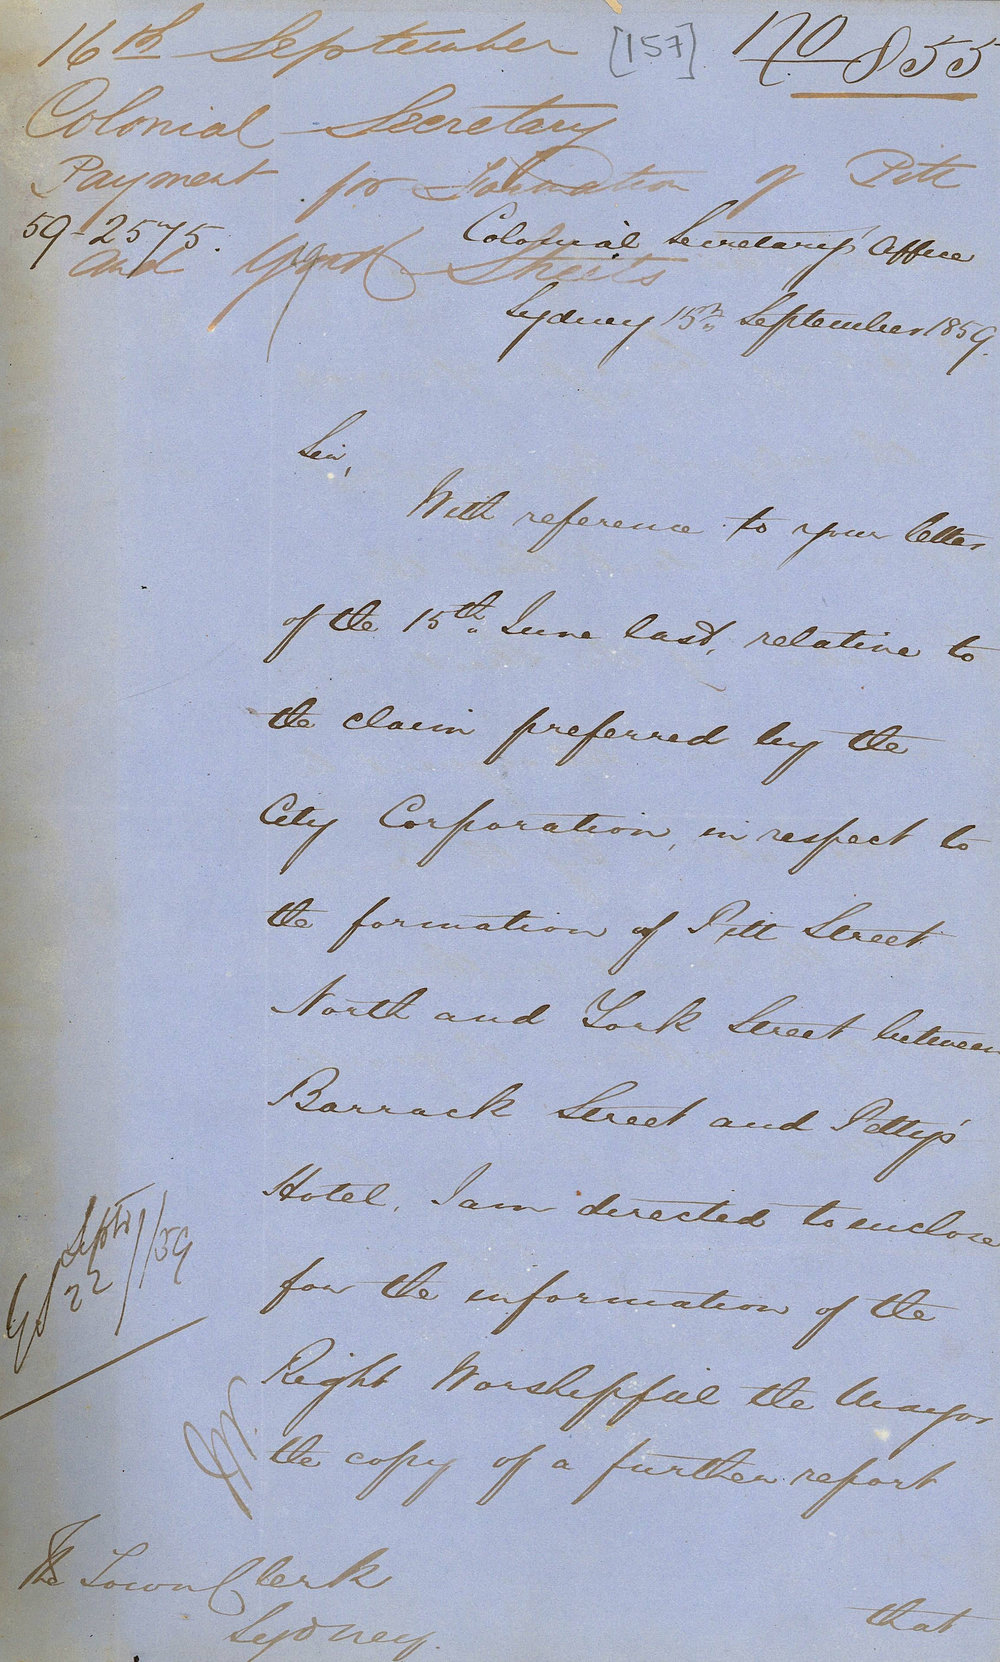 16th September [157] 170 855
Colonial Secretary
Payment for Formation of Pitt
59-2575.
and York Streets
Colonial Secretary's Office
Sydney 15th September 1859.
Sir,
With reference to your letter
of the 15th June last, relative to
the claim preferred by the
City Corporation, in respect to
the formation of Pitt Street
North and York Street between
Barrack Street and Petty's
Hotel, I am directed to enclose
for the information of the
Right Worshipful the Mayor
the copy of a further report
Septr
22/59
The Town Clerk
Sydney.
that